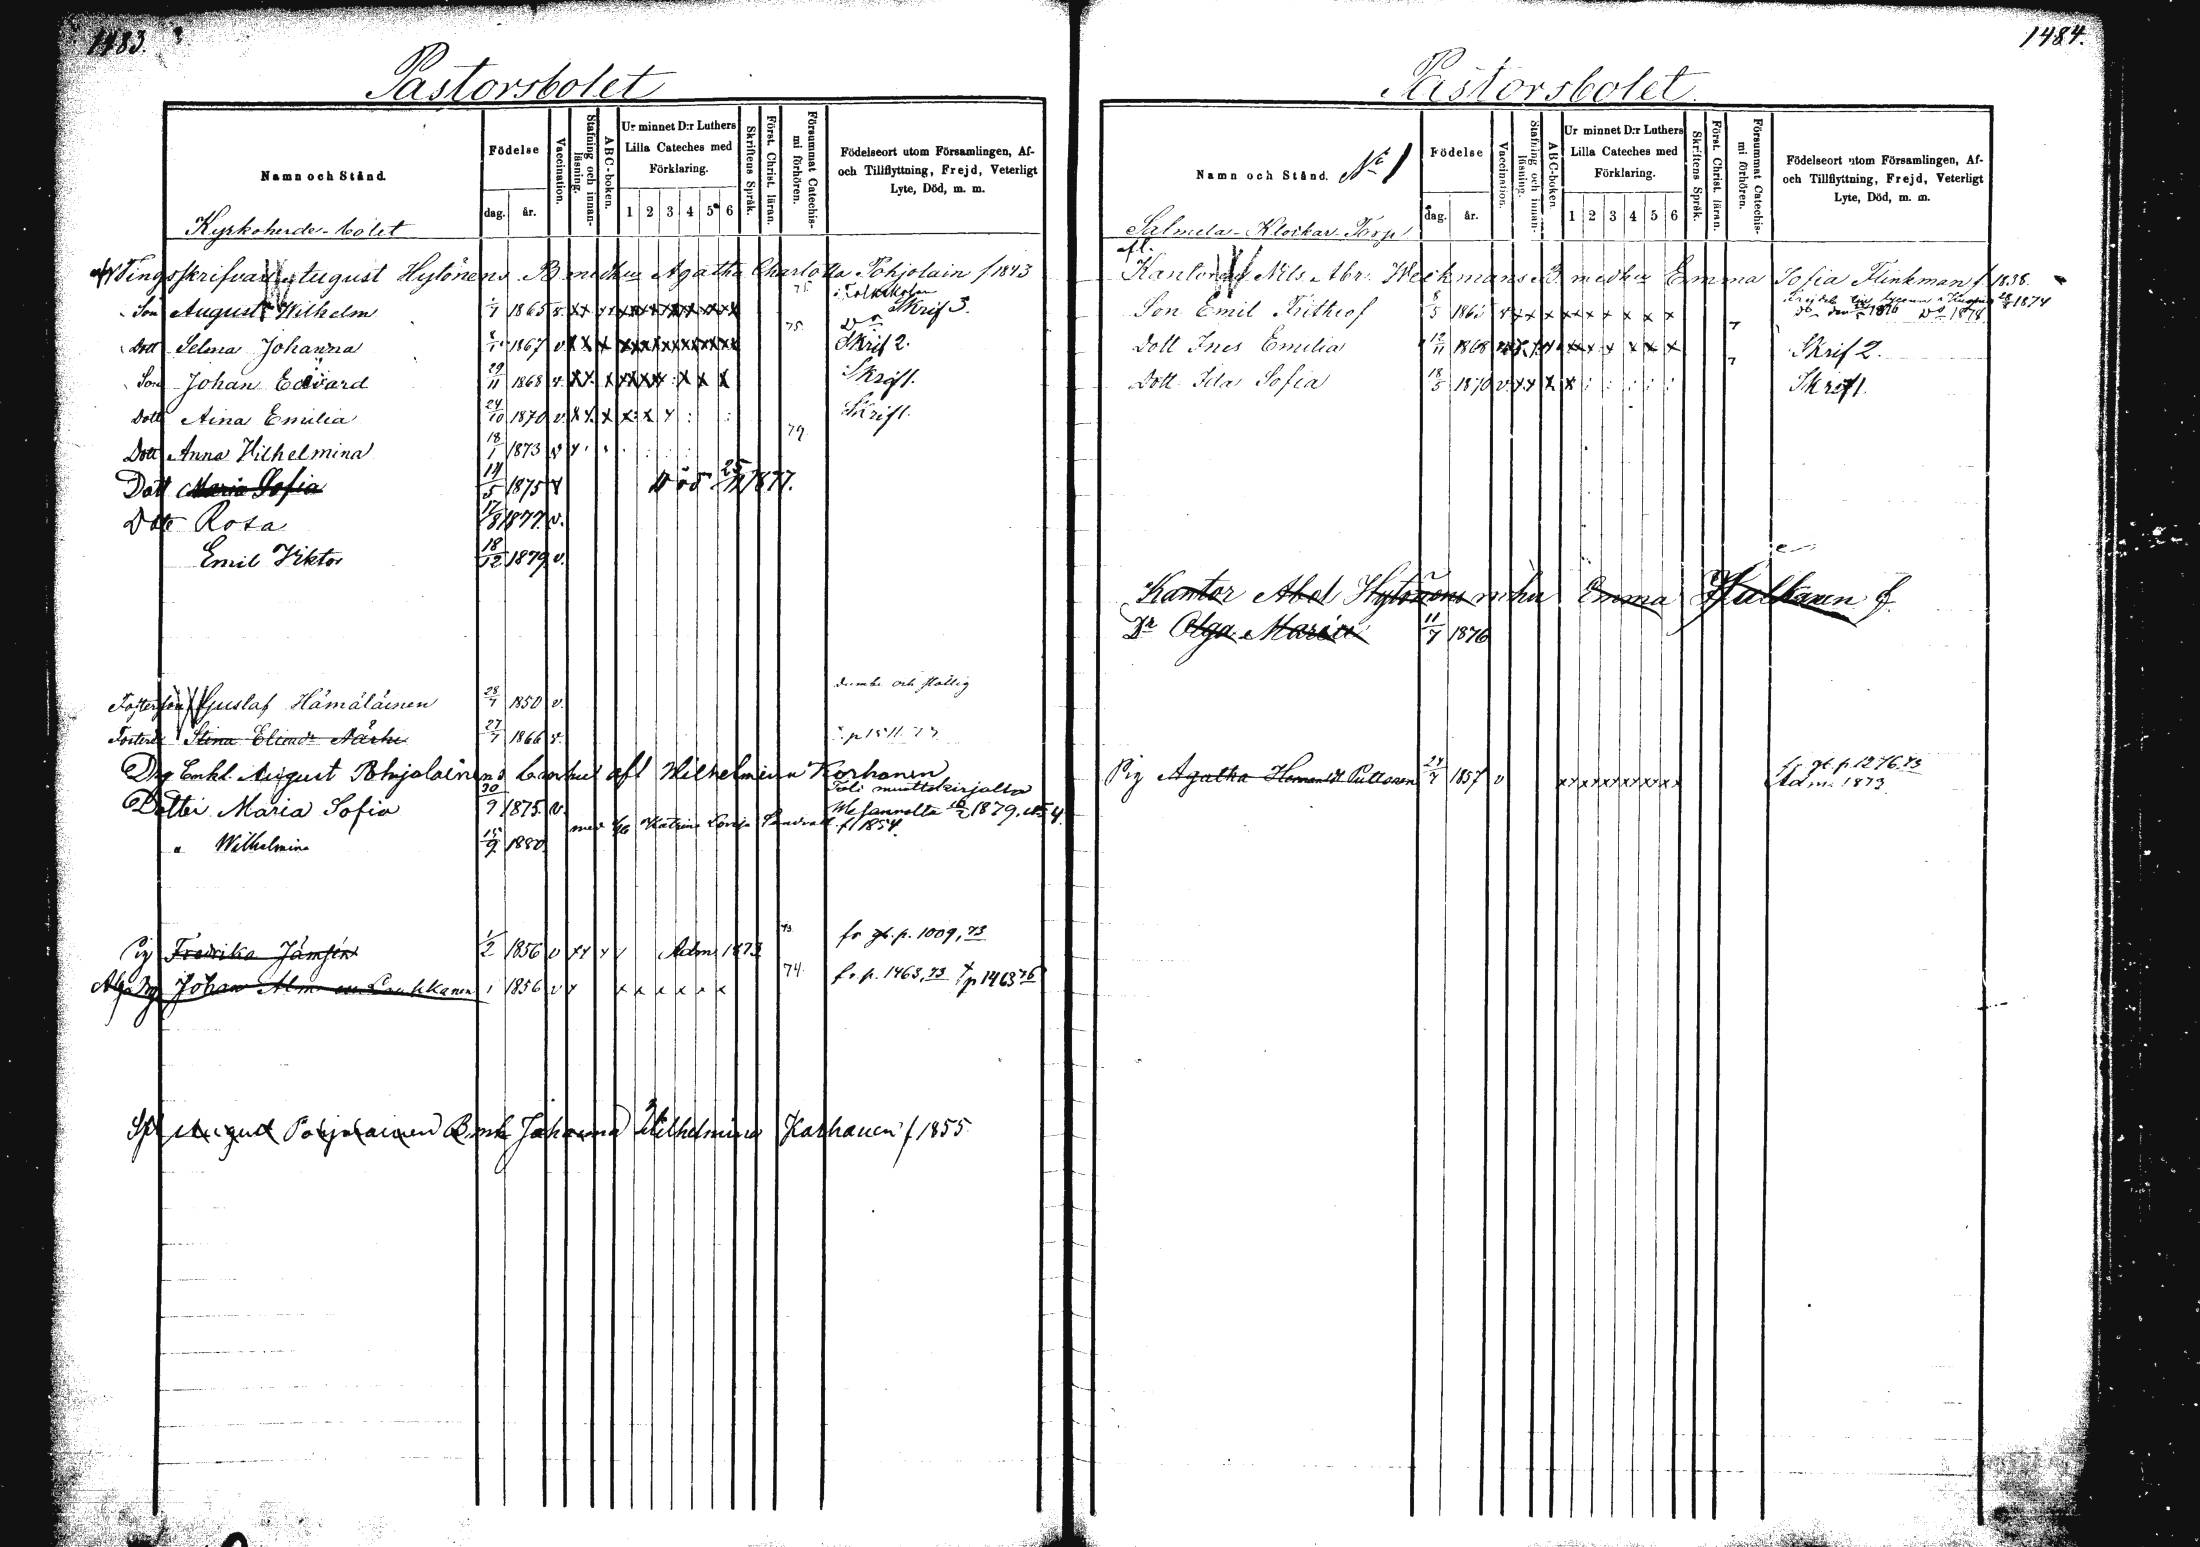 1483.
Pastorsbolet
Namn och Stånd.
Födelse
dag. år.
Vaccination.
Stafning och innanläsning.
ABC-boken.
Ur minnet D:r Luthers Lilla Cateches med Förklaring.
1 2 3 4 5 6
Skriftens Språk.
Först. Christ. läran.
Försummat Catechismi förhören.
Födelseort utom Församlingen, Af- och Tillflyttning, Frejd, Veterligt Lyte, Död, m. m.
Kyrkoherde-bolet
Tingsskrifvaren August Hylönens B medhu Agatha Charlotta Pohjolain f 1843
Son August Wilhelm 1865 v. 75 Folkskolan Skrif 3.
Dott Selma Johanna 1867 v 75. Do Skrif 2.
Son Johan Edvard 29/11 1868 v. Skrif 1.
Dott Aina Emilia 24/10 1870 v. Skrif 1.
Dott Anna Wilhelmina 18/1 1873 v 79
Dott Maria Sofia 14/5 1875 v Död 25/12 1877.
Dott Rosa 17/8 1877. v.
Emil Viktor 18/12 1879 v.
Fosterson Gustaf Hämäläinen 28/7 1850 v. dumbe och
Stina 27/7 1866 v.
Drg Enkl. August Pohjolainens medhu afl Wilhelmina Korhonen
Dotter Maria Sofia 30/9 1875. v. muuttokirjalta 1879,
med Katrina f 1854.
" Wilhelmina 15/9 1880.
Pig Fredrika Jämsén 1/2 1856 v Adm 1873 73 fr gl. p. 1009, 73
Johan 1856 v 74. fr. p. 1463, 73 p 1463 76
August Pohjolainen B. mh Johanna Wilhelmina Karhanen f 1855
1484.
Pastorsbolet.
Namn och Stånd. No 1
Födelse
dag. år.
Vaccination.
Stafning och innanläsning.
ABC-boken.
Ur minnet D:r Luthers Lilla Cateches med Förklaring.
1 2 3 4 5 6
Skriftens Språk.
Först. Christ. läran.
Försummat Catechismi förhören.
Födelseort utom Församlingen, Af- och Tillflyttning, Frejd, Veterligt Lyte, Död, m. m.
Salmela-Klockar Torp
afl.
Kantoren Nils Abr. Weckmans B medhu Emma Sofia Flinkman f 1838.
Son Emil Frithiof 8/5 1865 v 1874 1876 1878
Dott Ines Emilia 12/11 1868 Skrif 2.
Dott Ida Sofia 18/5 1870 v Skrif 1.
Kantor Abel Hylönens mhu Emma f
Dr Olga Maria 11/7 1876
Pig Agatha Puttonen 24/7 1857 v fr gl. p. 1276, 73
Adm. 1873